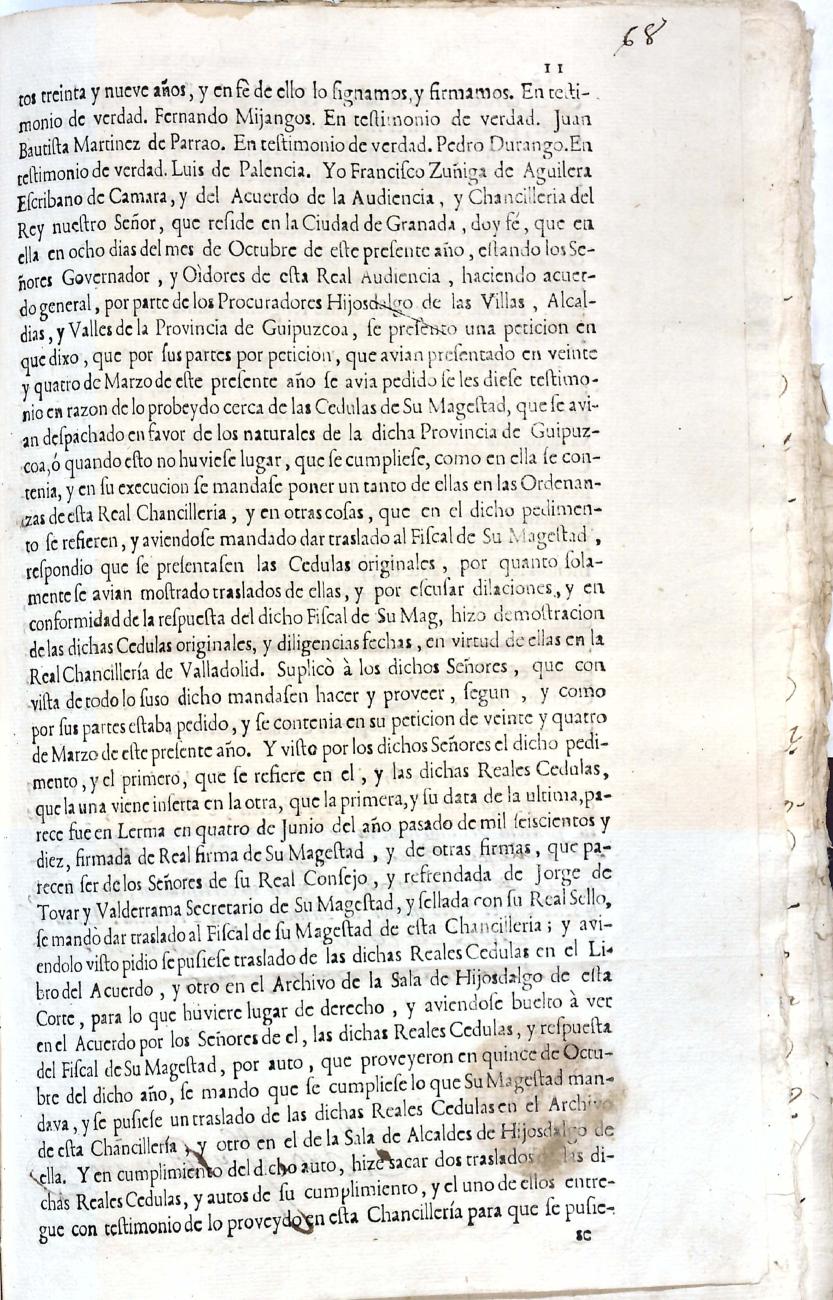 68
11
tos treinta y nueve años, y en fè de ello lo ſignamos, y firmamos. En teſti-
monio de verdad. Fernando Mijangos. En teſtimonio de verdad. Juan
Bautiſta Martinez de Parrao. En teſtimonio de verdad. Pedro Durango. En
teſtimonio de verdad. Luis de Palencia. Yo Franciſco Zuñiga de Aguilera
Eſcribano de Camara, y del Acuerdo de la Audiencia, y Chancilleria del
Rey nueſtro Señor, que reſide en la Ciudad de Granada, doy fé, que en
ella en ocho dias del mes de Octubre de eſte preſente año, eſtando los Se-
ñores Governador, y Oìdores de eſta Real Audiencia, haciendo acuer-
do general, por parte de los Procuradores Hijosdalgo de las Villas, Alcal-
dias, y Valles de la Provincia de Guipuzcoa, ſe preſentò una peticion en
que dixo, que por ſus partes por peticion, que avian preſentado en veinte
y quatro de Marzo de eſte preſente año ſe avia pedido ſe les dieſe teſtimo-
nio en razon de lo probeydo cerca de las Cedulas de Su Mageſtad, que ſe avi-
an deſpachado en favor de los naturales de la dicha Provincia de Guipuz-
coa, ó quando eſto no huvieſe lugar, que ſe cumplieſe, como en ella ſe con-
tenia, y en ſu execucion ſe mandaſe poner un tanto de ellas en las Ordenan-
zas de eſta Real Chancilleria, y en otras coſas, que en el dicho pedimen-
to ſe refieren, y aviendoſe mandado dar traslado al Fiſcal de Su Mageſtad,
reſpondio que ſe preſentaſen las Cedulas originales, por quanto ſola-
mente ſe avian moſtrado traslados de ellas, y por eſcuſar dilaciones, y en
conformidad de la reſpueſta del dicho Fiſcal de Su Mag, hizo demoſtracion
de las dichas Cedulas originales, y diligencias fechas, en virtud de ellas en la
Real Chancillería de Valladolid. Suplicò à los dichos Señores, que con
viſta de todo lo ſuso dicho mandaſen hacer y proveer, ſegun, y como
por ſus partes eſtaba pedido, y ſe contenia en su peticion de veinte y quatro
de Marzo de eſte preſente año. Y viſto por los dichos Señores el dicho pedi-
mento, y el primero, que ſe refiere en el, y las dichas Reales Cedulas,
que la una viene inſerta en la otra, que la primera, y ſu data de la ultima, pa-
rece fue en Lerma en quatro de Junio del año paſado de mil ſeiscientos y
diez, firmada de Real firma de Su Mageſtad, y de otras firmas, que pa-
recen ſer de los Señores de ſu Real Conſejo, y refrendada de Jorge de
Tovar y Valderrama Secretario de Su Mageſtad, y ſellada con ſu Real Sello,
ſe mandò dar traslado al Fiſcal de ſu Mageſtad de eſta Chancilleria; y avi-
endolo viſto pidio ſe puſieſe traslado de las dichas Reales Cedulas en el Li-
bro del Acuerdo, y otro en el Archivo de la Sala de Hijosdalgo de eſta
Corte, para lo que huviere lugar de derecho, y aviendoſe buelto à ver
en el Acuerdo por los Señores de el, las dichas Reales Cedulas, y reſpueſta
del Fiſcal de Su Mageſtad, por auto, que proveyeron en quince de Octu-
bre del dicho año, ſe mando que ſe cumplieſe lo que Su Mageſtad man-
dava, y ſe puſieſe un traslado de las dichas Reales Cedulas en el Archivo
de eſta Chancillería, y otro en el de la Sala de Alcaldes de Hijosdalgo de
ella. Y en cumplimiento del dicho auto, hize sacar dos traslados de las di-
chas Reales Cedulas, y autos de ſu cumplimiento, y el uno de ellos entre-
gue con teſtimonio de lo proveydo en eſta Chancillería para que ſe puſie-
se